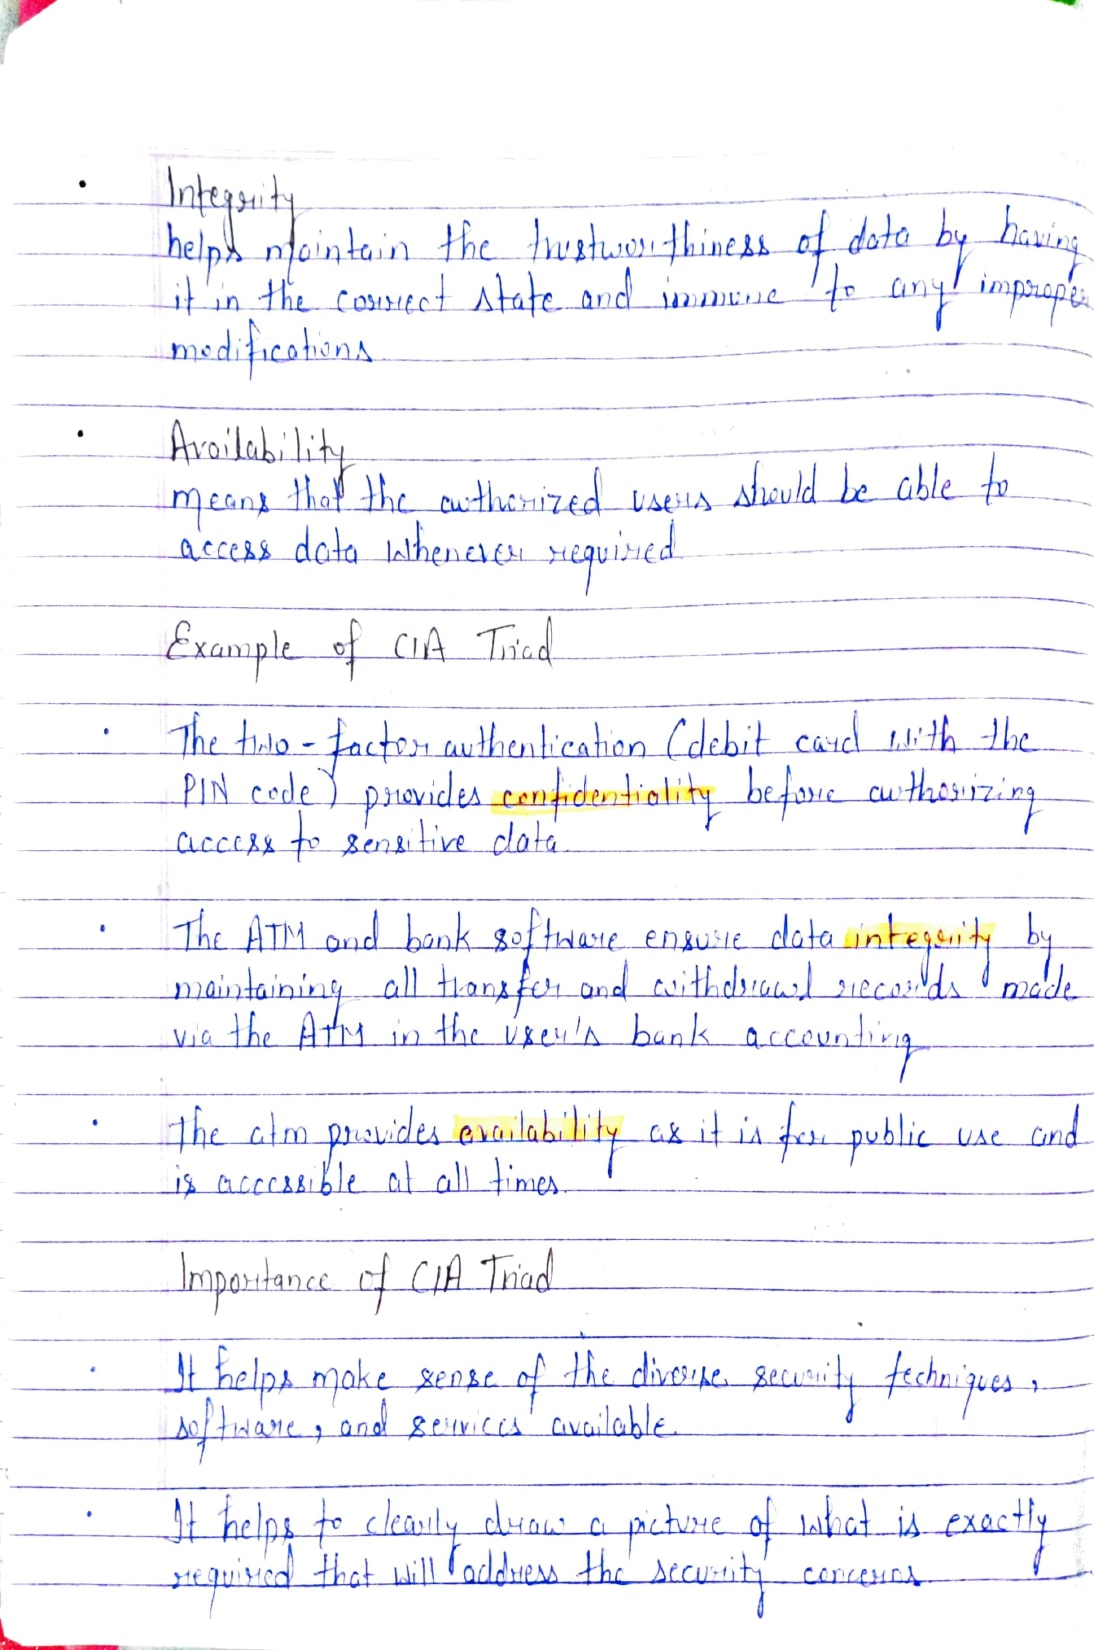 • Integrity
helps maintain the trustworthiness of data by having
it in the correct state and immune to any improper
modifications
• Availability
means that the authorized users should be able to
access data whenever required
Example of CIA Triad
• The two-factor authentication (debit card with the
PIN code) provides confidentiality before authorizing
access to sensitive data.
• The ATM and bank software ensure data integrity by
maintaining all transfer and withdrawl records made
via the ATM in the user's bank accounting
• The atm provides availability as it is for public use and
is accessible at all times.
Importance of CIA Triad
• It helps make sense of the diverse security techniques,
software, and services available.
• It helps to clearly draw a picture of what is exactly
required that will address the security concerns.